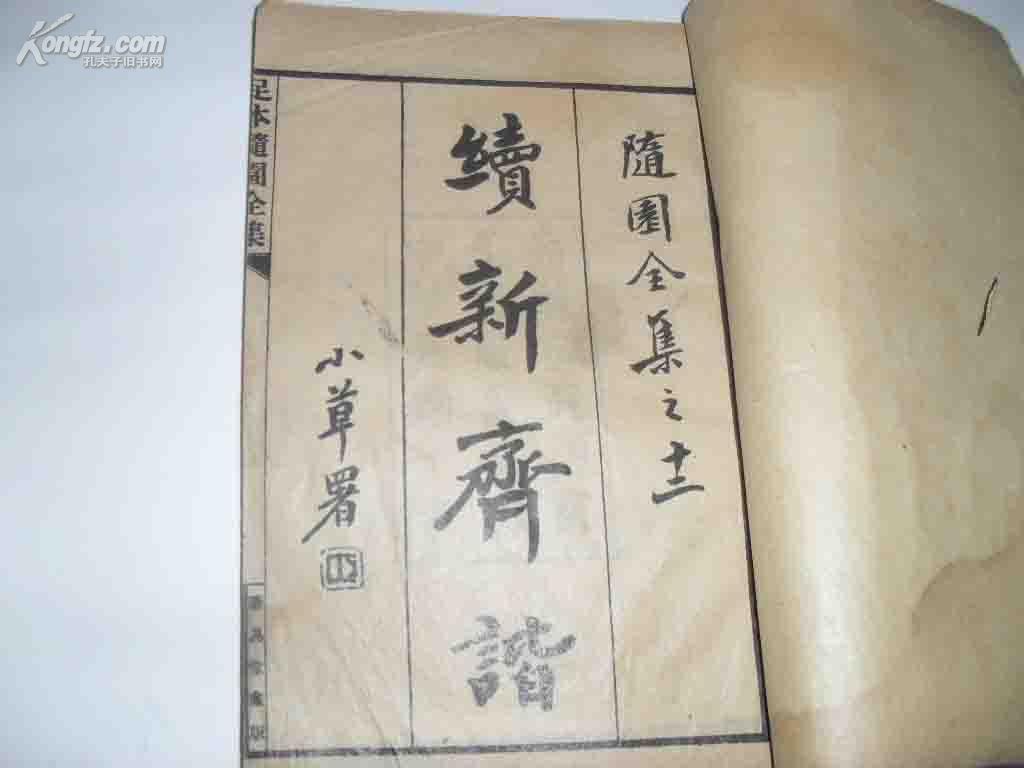 Kongfz.com
孔夫子旧书网
隨園全集之十二
續新齊諧
小草署
足本隨園全集